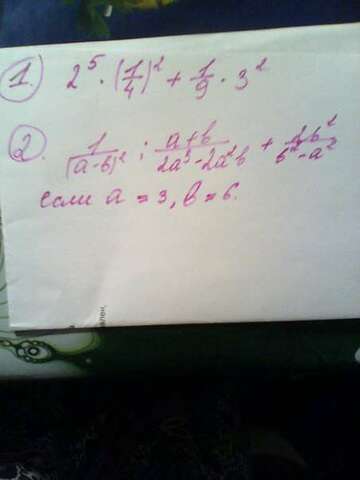 1. 2⁵ · (1/4)² + 1/9 · 3²
2. 1/(a-b)² : (a+b)/(2a³-2a²b) + 2b²/(b²-a²)
если a = 3, b = 6.